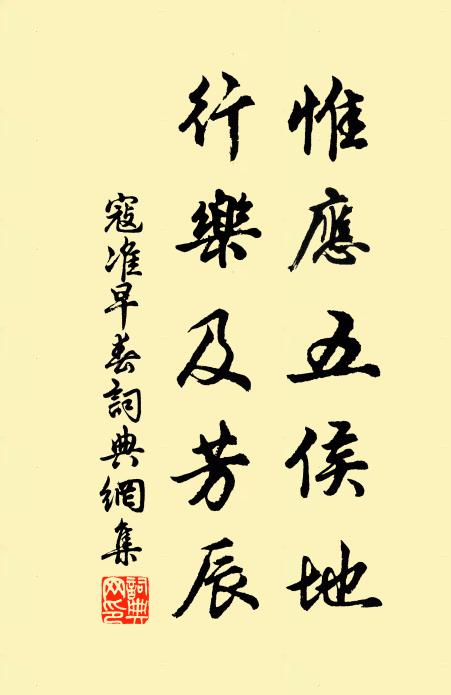 惟應五侯地
行樂及芳辰
寇准早春詞典網集
詞典網印